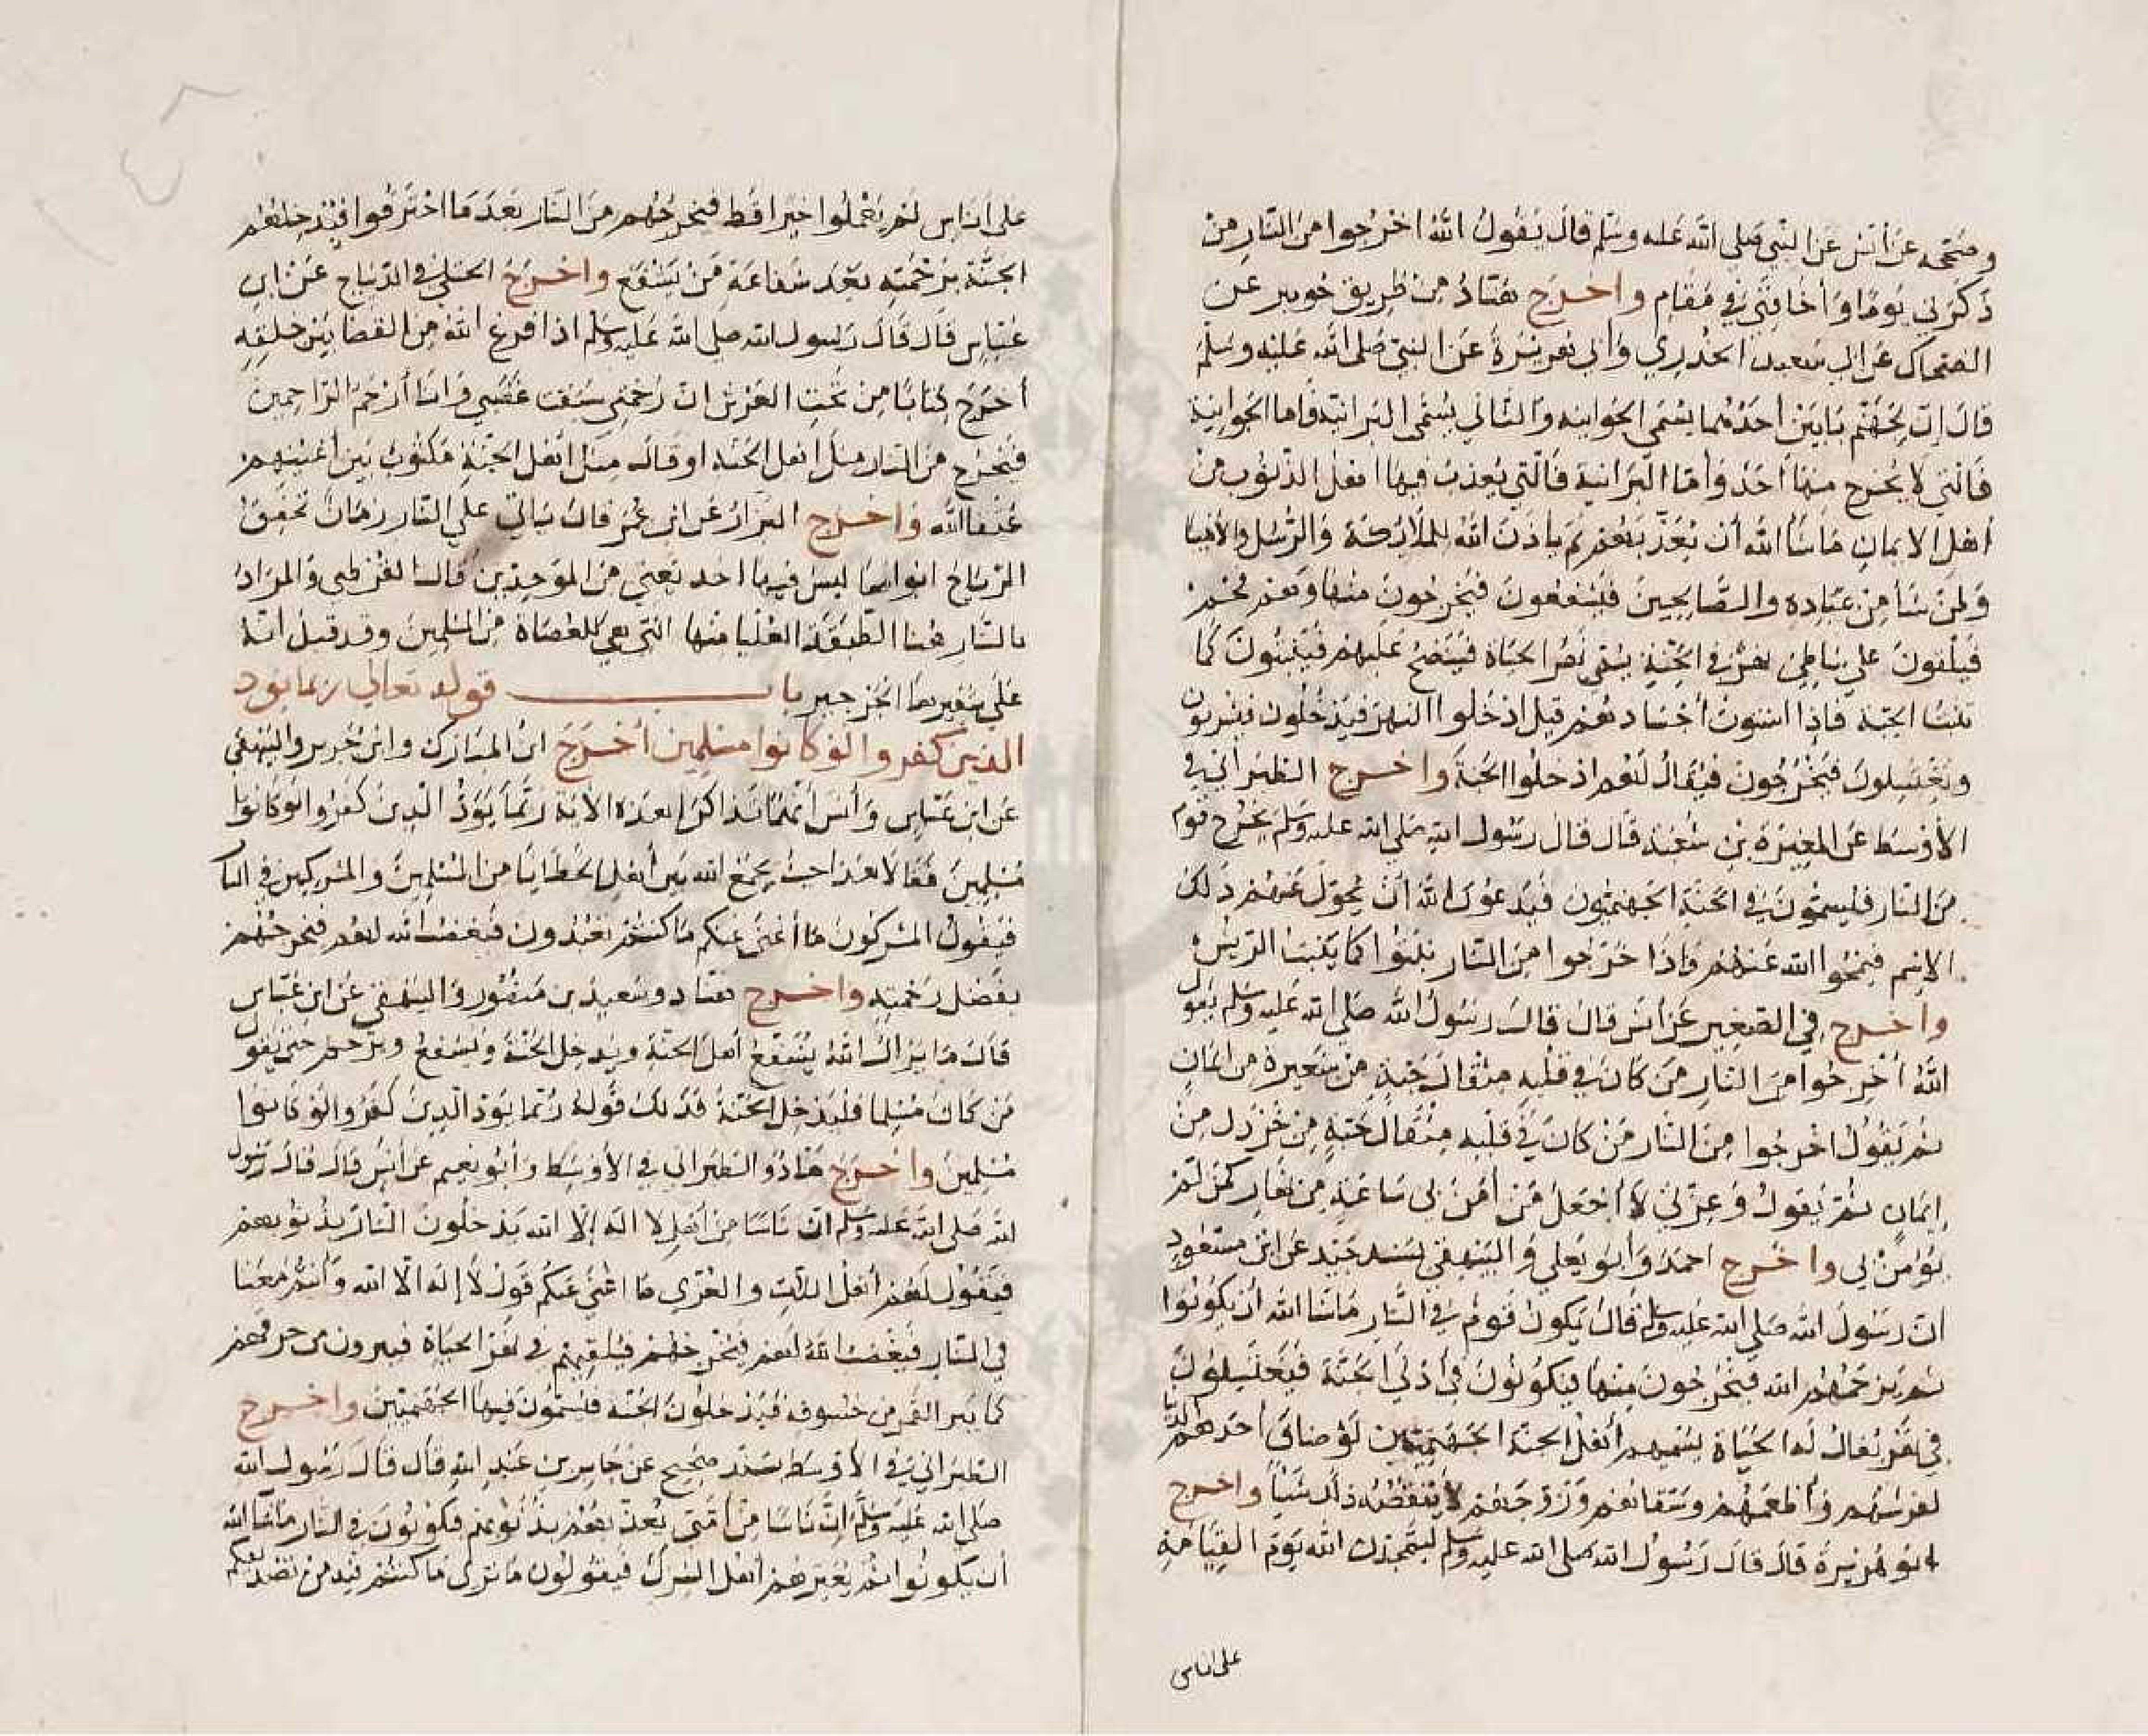 وصححه عن أنس عن النبي صلى الله عليه وسلم قال يقول الله اخرجوا من النار من
ذكرني يوما وأخافني في مقام واخرج هناد من طريق جويبر عن
الضحاك عن ابي سعيد الخدري وأبي هريرة عن النبي صلى الله عليه وسلم
قال إن لجهنم بابين أحدهما يسمى الجوانيه والثاني يسمى البرانيه فأما الجوانية
فالتي لا يخرج منها أحد وأما البرانية فالتي يعذب فيها اهل الذنوب من
اهل الايمان ماشأ الله أن يعذبهم ثم يأذن الله للملائكة والرسل والأنبيا
ولمن شأ من عباده والصالحين فيشفعون فيخرجون منها وهم فحم
فيلقون على شاطئ نهر في الجنة يسمى نهر الحياة فينضح عليهم فينبتون كما
تنبت الحبة فإذا استوت أجسادهم قيل ادخلوا النهر فيدخلون فيشربون
ويغتسلون فيخرجون فيقال لهم ادخلوا الجنة واخرج الطبراني في
الأوسط عن المغيرة بن شعبة قال قال رسول الله صلى الله عليه وسلم يخرج قوم
من النار فيسمون في الجنة الجهنميون فيدعون الله أن يحول عنهم ذلك
الاسم فيمحوا الله عنهم وإذا خرجوا من النار نبتوا كما ينبت الريش
واخرج في الصغير عن أنس قال قال رسول الله صلى الله عليه وسلم يقول
الله أخرجوا من النار من كان في قلبه مثقال حبة من شعيرة من ايمان
ثم يقول اخرجوا من النار من كان في قلبه مثقال حبة من خردل من
إيمان ثم يقول وعزتي لا أجعل من أمن بي ساعة من نهار كمن لم
يؤمن بي واخرج احمد وأبو يعلى والبيهقي بسند جيد عن ابن مسعود
ان رسول الله صلى الله عليه وسلم قال يكون قوم في النار ماشا الله أن يكونوا
ثم يرحمهم الله فيخرجون منها فيكونون في أدنى الجنة فيغتسلون
في نهر يقال له الحياة يسميهم أهل الجنة الجهنميين لو ضاف أحدهم الدنيا
لفرشهم وأطعمهم وسقاهم وزوجهم لا ينقصه ذلك شيأ واخرج
ابو هريرة قال قال رسول الله صلى الله عليه وسلم ليتمجدن الله يوم القيامة
على اناس
على اناس لم يعملوا خيرا قط فيخرجهم من النار بعد ما احترقوا فيدخلهم
الجنة برحمته بعد شفاعة من يشفع واخرج الختلي في الديباج عن ابن
عباس قال قال رسول الله صلى الله عليه وسلم اذا فرغ الله من القضا بين خلقه
أخرج كتابا من تحت العرش ان رحمتي سبقت غضبي وانا أرحم الراحمين
فيخرج من النار مثل اهل الجنة او قال مثل أهل الجنة مكتوب بين أعينهم
عتقا الله واخرج البزار عن ابن عمر قال يأتي على النار زمان تخفق
الرياح ابوابها ليس فيها احد يعني من الموحدين قال القرطبي والمراد
بالنار هنا الطبقة العليا منها التي هي للعصاة من المسلمين وقد قيل أنه
على شفيرها الجرجير باب قوله تعالى ربما يود
الذين كفروا لو كانوا مسلمين أخرج ابن المبارك وابن جرير والبيهقي
عن ابن عباس وأنس أنهما تذاكرا هذه الآية ربما يود الذين كفروا لو كانوا
مسلمين فقالا هذا حيث يجمع الله بين أهل الخطايا من المسلمين والمشركين في النا
فيقول المشركون ما أغنى عنكم ما كنتم تعبدون فيغضب الله لهم فيخرجهم
بفضل رحمته واخرج هناد وسعيد بن منصور والبيهقي عن ابن عباس
قال ما يزال الله يشفع أهل الجنة ويدخل الجنة ويشفع ويرحم حتى يقول
من كان مسلما فليدخل الجنة فذلك قوله ربما يود الذين كفروا لو كانوا
مسلمين واخرج هناد والطبراني في الأوسط وأبو نعيم عن أنس قال قال رسول
الله صلى الله عليه وسلم ان ناسا من أهل لا اله إلا الله يدخلون النار بذنوبهم
فيقول لهم أهل اللات والعزى ما اغنى عنكم قول لا إله الا الله وأنتم معنا
في النار فيغضب الله لهم فيخرجهم فيلقيهم في نهر الحياة فيبرون من حرقهم
كما يبر القمر من خسوفه فيدخلون الجنة فيسمون فيها الجهنميين واخرج
الطبراني في الأوسط بسند صحيح عن جابر بن عبد الله قال قال رسول الله
صلى الله عليه وسلم إن ناسا من أمتي يعذبهم بذنوبهم فيكونون في النار ماشا الله
أن يكونوا ثم يعيرهم أهل الشرك فيقولون ما نرى ما كنتم فيه من تصديقكم